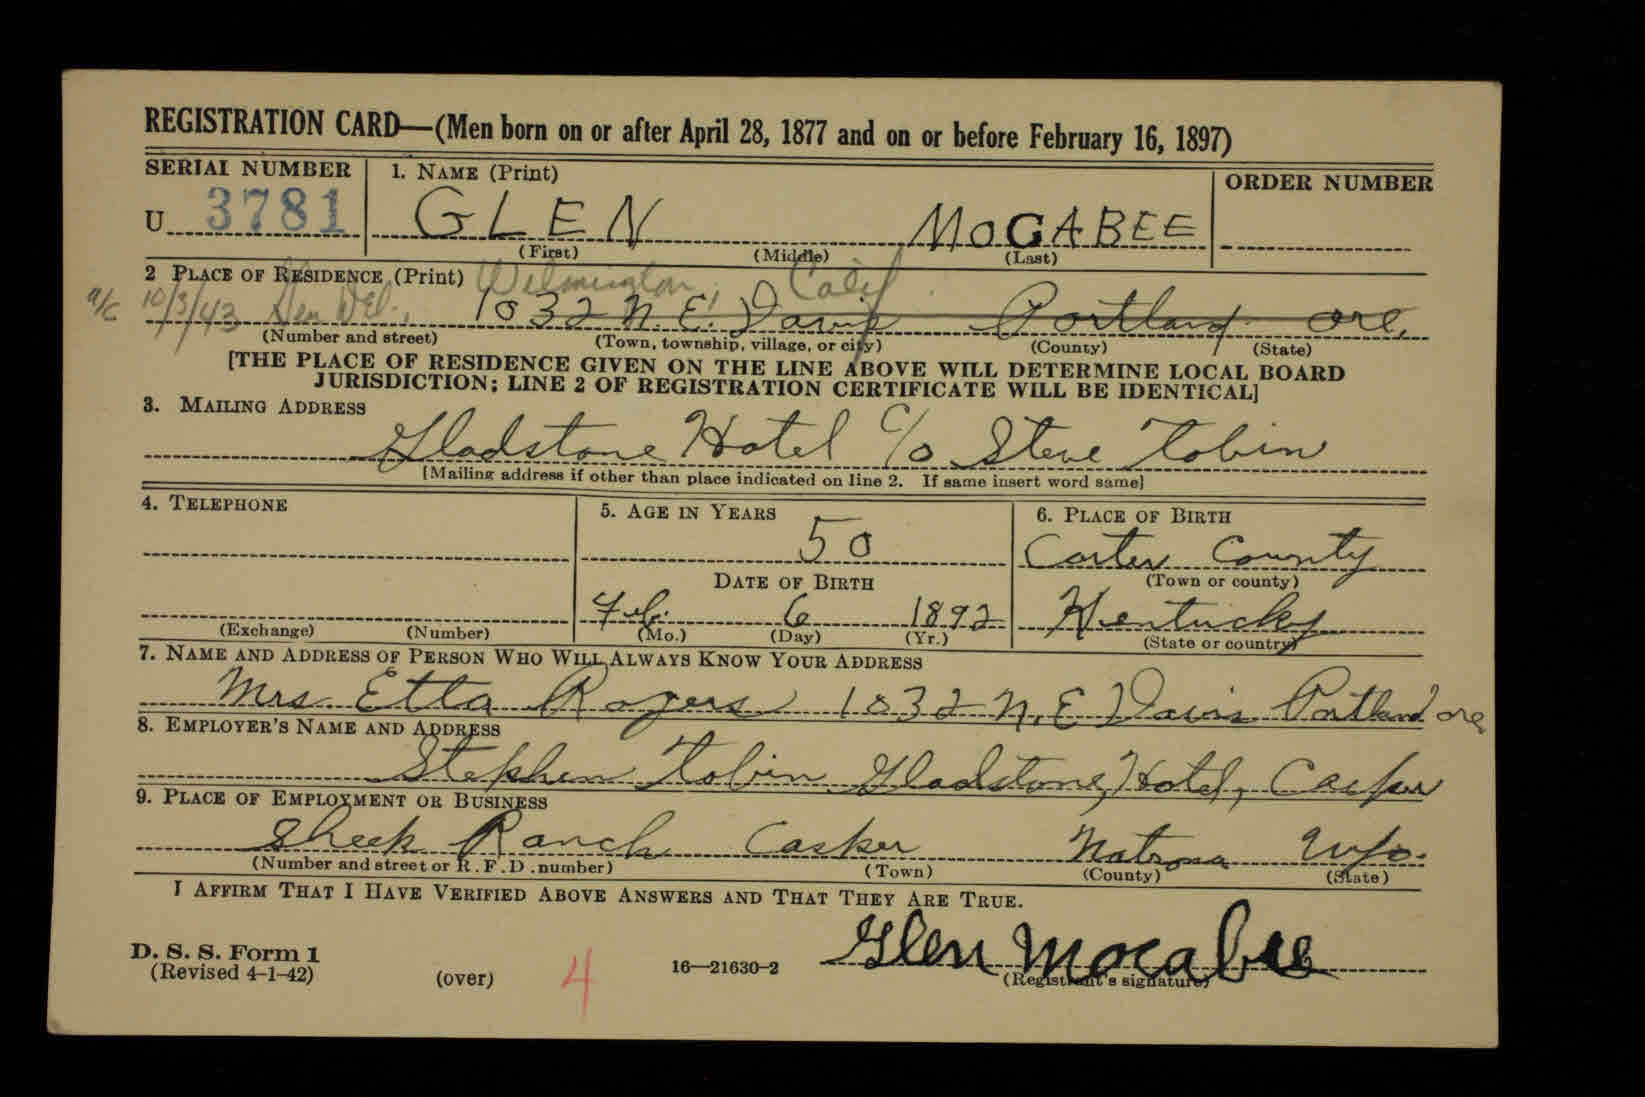 REGISTRATION CARD—(Men born on or after April 28, 1877 and on or before February 16, 1897)
SERIAL NUMBER 1. NAME (Print) ORDER NUMBER
U 3781 GLEN MOCABEE
(First) (Middle) (Last)
2 PLACE OF RESIDENCE (Print) Wilmington, Calif.
a/c 10/3/43 Gen Del., 1832 N.E. Davis Portland Ore.
(Number and street) (Town, township, village, or city) (County) (State)
[THE PLACE OF RESIDENCE GIVEN ON THE LINE ABOVE WILL DETERMINE LOCAL BOARD
JURISDICTION; LINE 2 OF REGISTRATION CERTIFICATE WILL BE IDENTICAL]
3. MAILING ADDRESS
Gladstone Hotel c/o Steve Tobin
[Mailing address if other than place indicated on line 2. If same insert word same]
4. TELEPHONE 5. AGE IN YEARS 6. PLACE OF BIRTH
50 Carter County
DATE OF BIRTH (Town or county)
Feb. 6 1892 Kentucky
(Exchange) (Number) (Mo.) (Day) (Yr.) (State or country)
7. NAME AND ADDRESS OF PERSON WHO WILL ALWAYS KNOW YOUR ADDRESS
Mrs. Etta Rogers 1832 N.E Davis Portland Ore
8. EMPLOYER'S NAME AND ADDRESS
Stephen Tobin Gladstone Hotel, Casper
9. PLACE OF EMPLOYMENT OR BUSINESS
Sheep Ranch Casper Natrona Wyo.
(Number and street or R. F. D. number) (Town) (County) (State)
I AFFIRM THAT I HAVE VERIFIED ABOVE ANSWERS AND THAT THEY ARE TRUE.
Glen Mocabee
D. S. S. Form 1
(Revised 4-1-42) (over) 4 16—21630-2 (Registrant's signature)